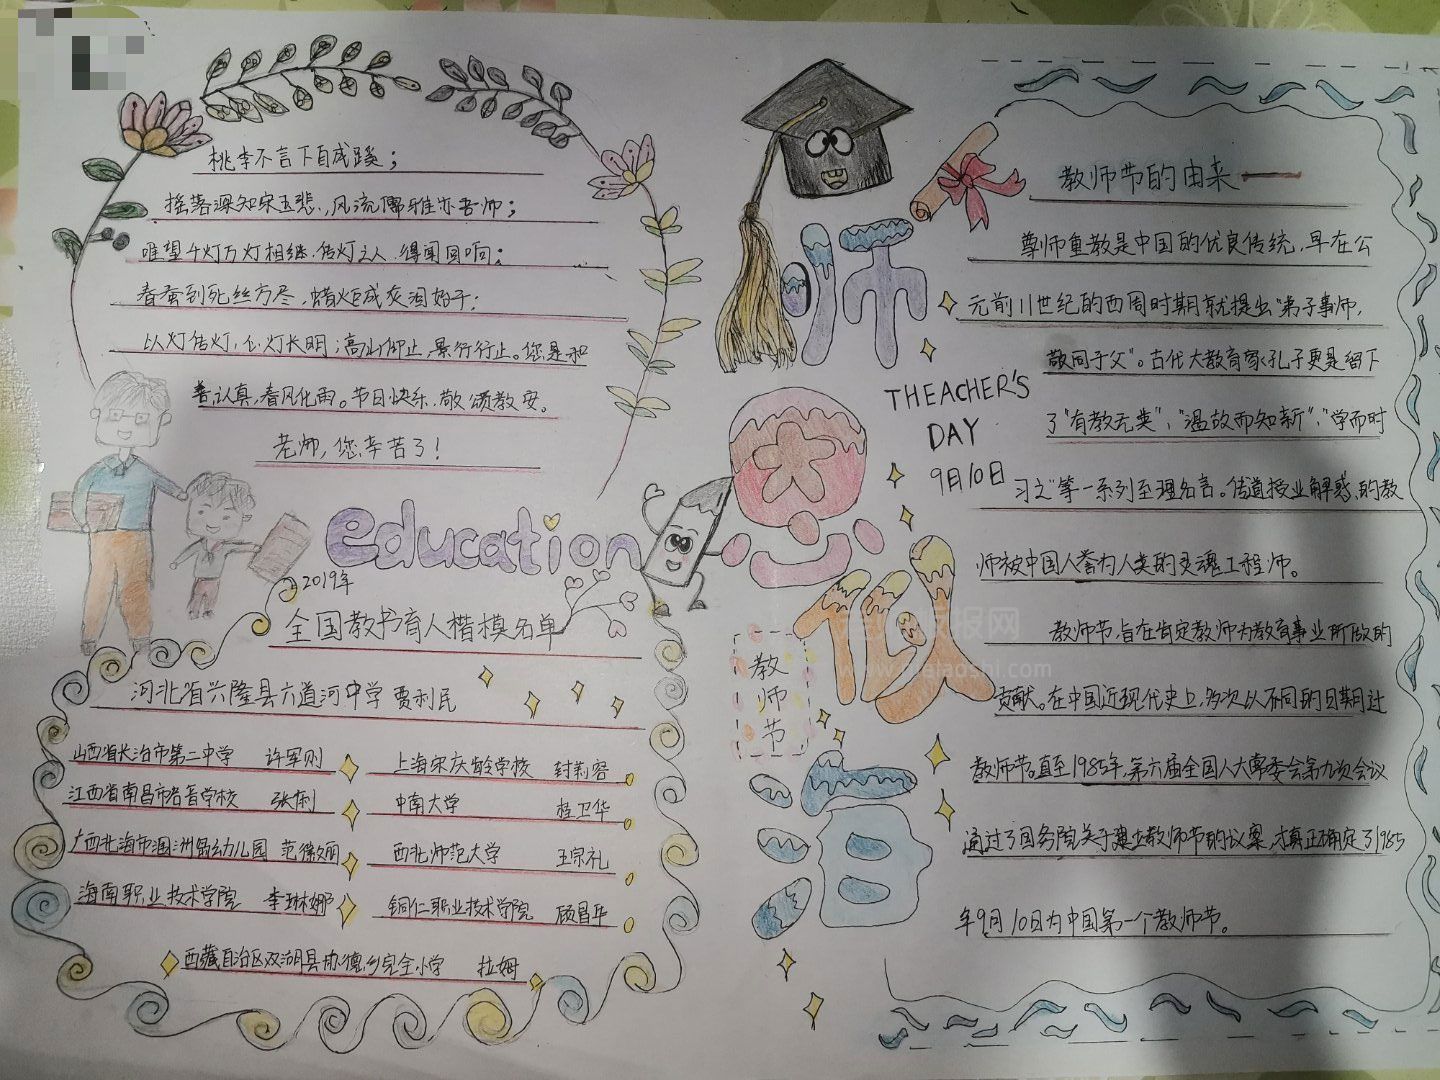 桃李不言下自成蹊;
摇落深知宋玉悲,风流儒雅亦吾师;
唯望千灯万灯相继,传灯之人,得闻回响;
春蚕到死丝方尽,蜡炬成灰泪始干;
以灯传灯,心灯长明;高山仰止,景行行止。您是和
善,认真,春风化雨。节日快乐,敬颂教安。
老师,您辛苦了!
education
2019年
全国教书育人楷模名单
河北省兴隆县六道河中学 贾利民
山西省长治市第二中学 许军则
上海宋庆龄学校 封莉容
江西省南昌市启音学校 张俐
中南大学 桂卫华
广西北海市涠洲岛幼儿园 范徽丽
西北师范大学 王宗礼
海南职业技术学院 李琳娜
铜仁职业技术学院 顾昌华
西藏自治区双湖县协德乡完全小学 拉姆
师恩似海
THEACHER'S
DAY
9月10日
教师节
教师节的由来——
尊师重教是中国的优良传统,早在公
元前11世纪的西周时期就提出"弟子事师,
敬同于父"。古代大教育家孔子更是留下
了"有教无类","温故而知新","学而时
习之"等一系列至理名言。传道授业解惑,的教
师被中国人誉为人类的灵魂工程师。
教师节,旨在肯定教师为教育事业所做的
贡献。在中国近现代史上,多次以不同的日期过
教师节。直至1985年,第六届全国人大常委会第九次会议
通过了国务院关于建立教师节的议案,才真正确定了1985
年9月10日为中国第一个教师节。
老师板报网